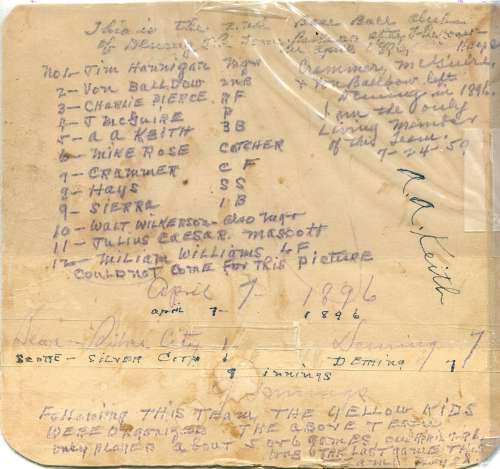 This is the Base Ball club
of Deming
in April 1896
No 1- Jim Hannigan Mgr
2- Von Balldow 2nB
3- Charlie Pierce RF
4- J McGuire P
5- A A Keith 3B
6- Mike Rose Catcher
7- Crammer C F
8- Hays SS
9- Sierra 1 B
10- Walt Wilkerson- Also Mgr
11- Julius Caesar Mascott
12- Miliam Williams LF
Could not come for this picture
Crammer, McGuire,
+ Von Balldow left
Deming in 1896.
I am the only
Living Member
of this Team.
7-24-59
A. A. Keith
April 7- 1896
April 7- 1896
Silver City Deming 7
Score- Silver City Deming 7
9 innings
innings
Following This Team The Yellow Kids
Were organized The above Team
only played about 5 or 6 games, our
was the last game they